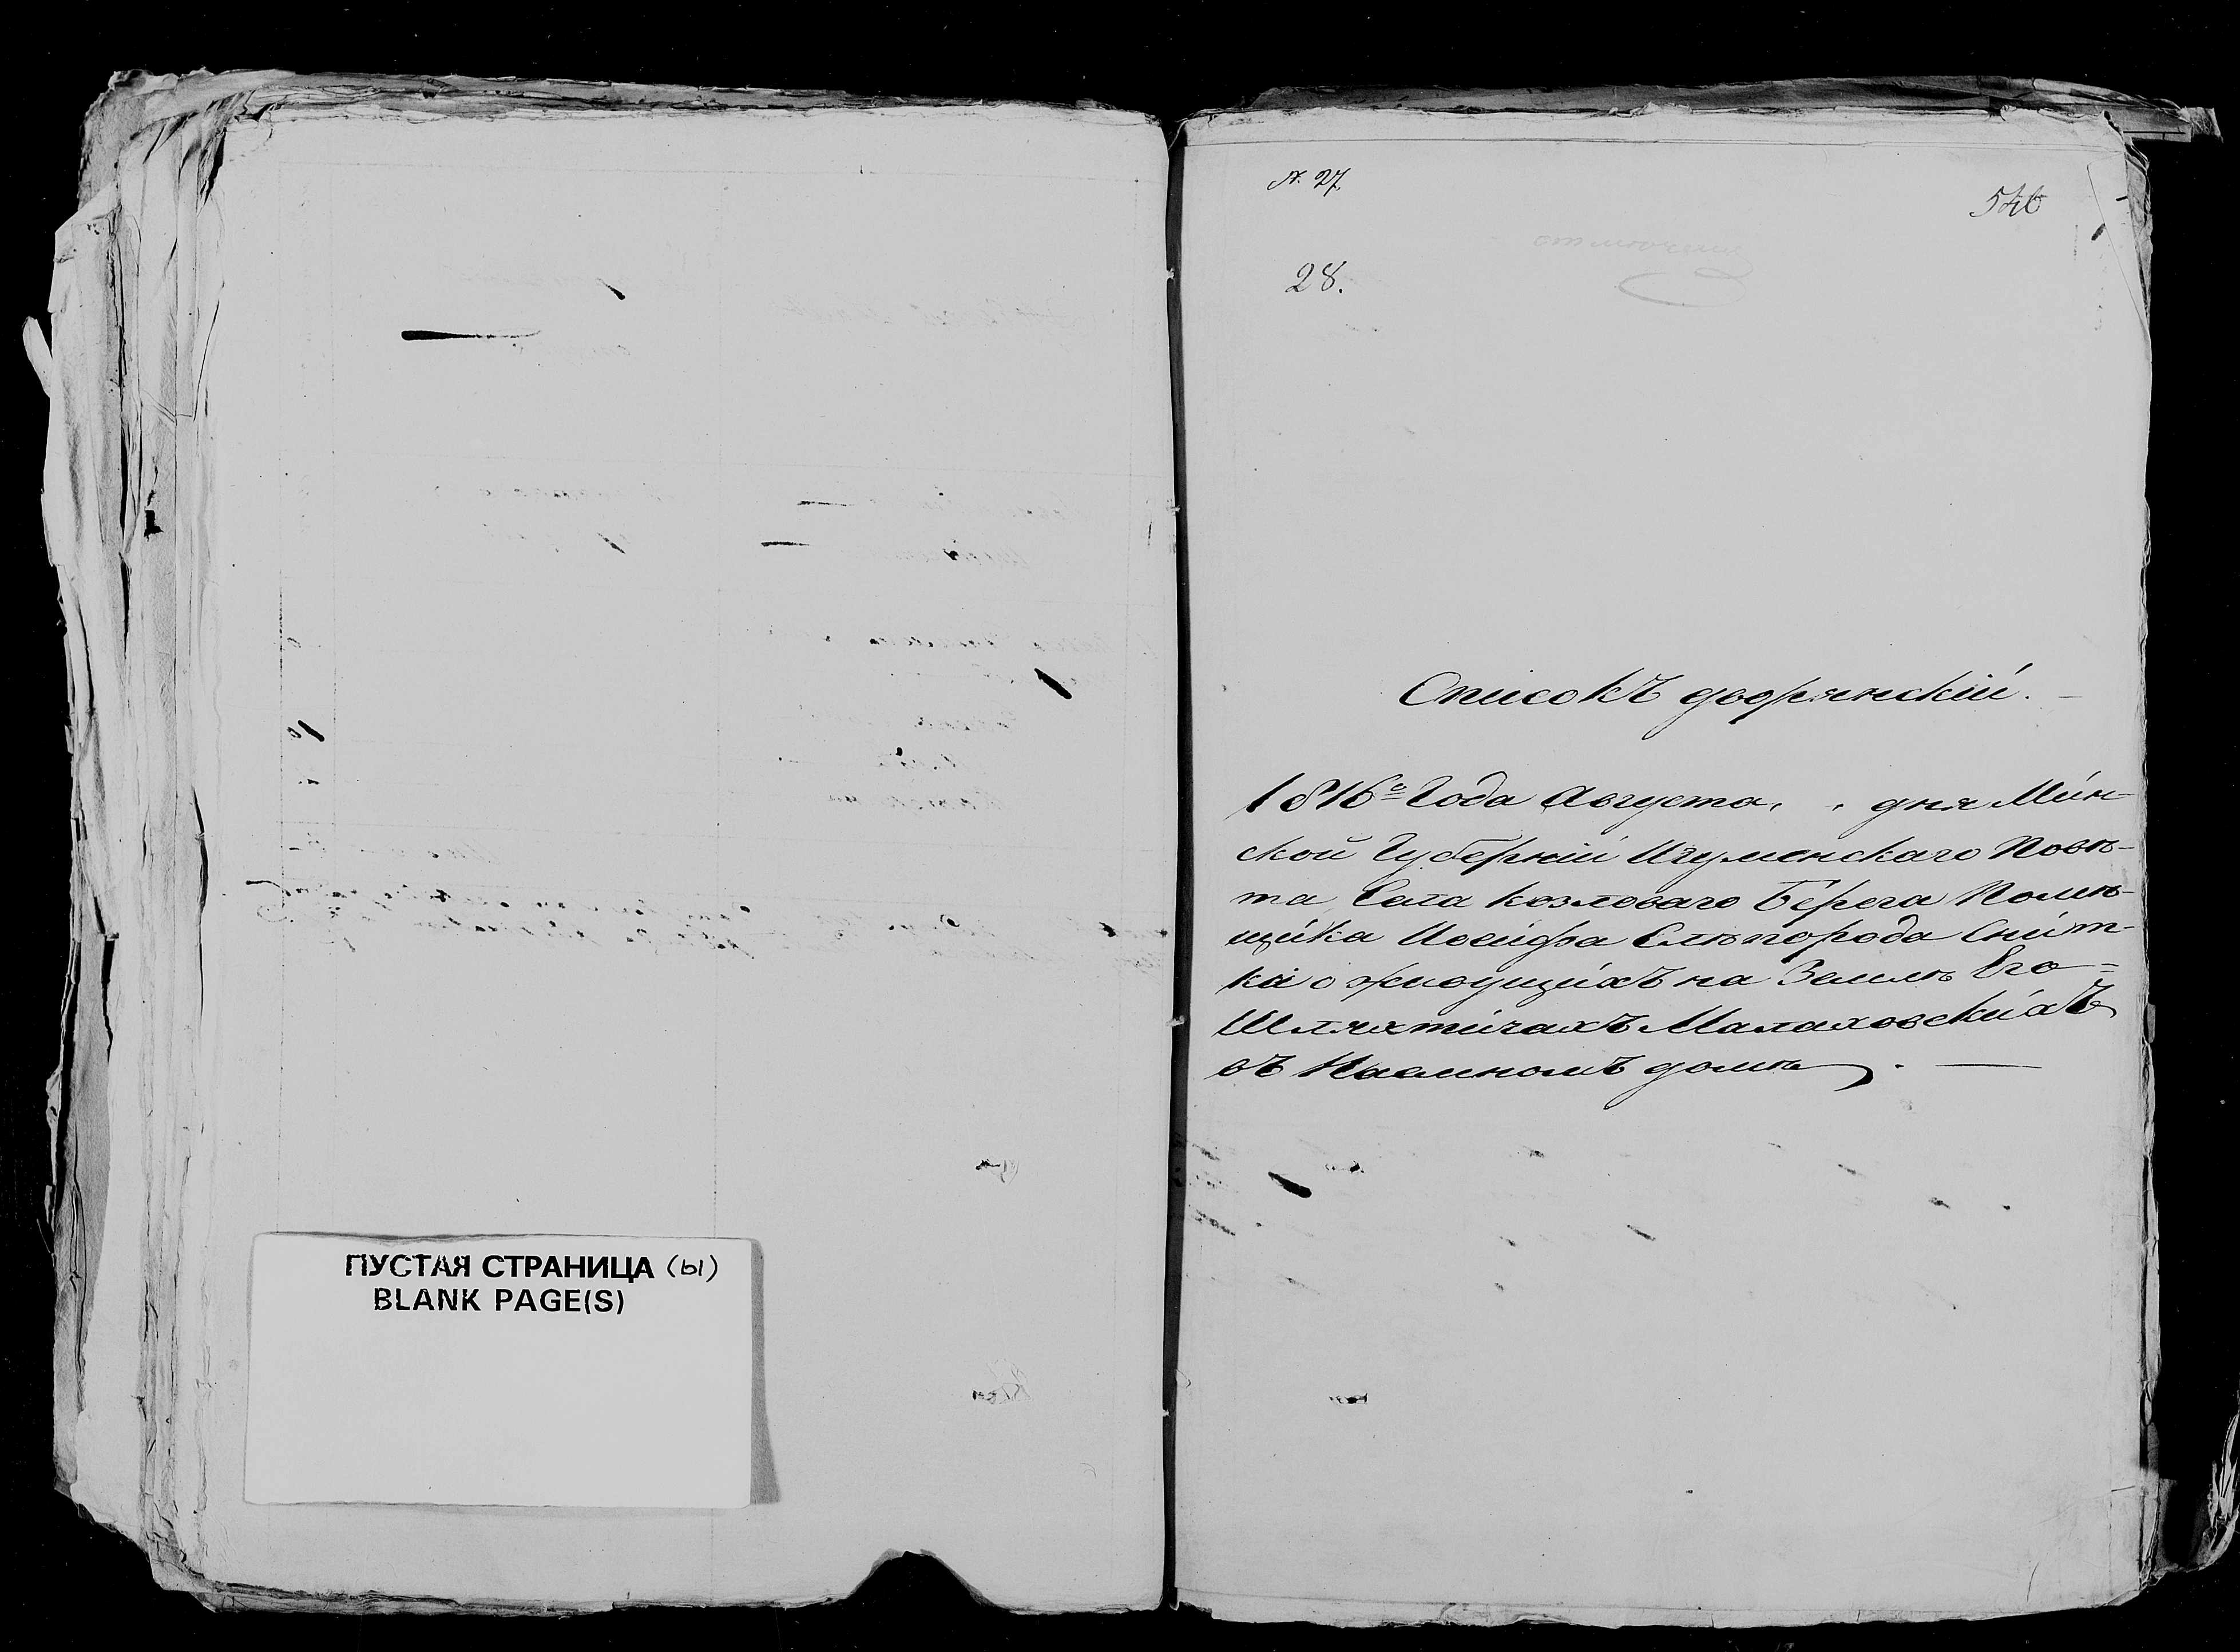 ПУСТАЯ СТРАНИЦА (ы)
BLANK PAGE(S)
№ 27.
546
28.
Списокъ дворянскій.
1816го Года Августа, , дня Мин-
ской Губерніи Игуменскаго Повѣ-
та, Села Козловаго Берега Помѣ-
щика Иосифа Слѣпорода Снит-
ки о живущихъ на Землѣ Его
Шляхтичахъ Малаховскихъ
въ Наемномъ домѣ.